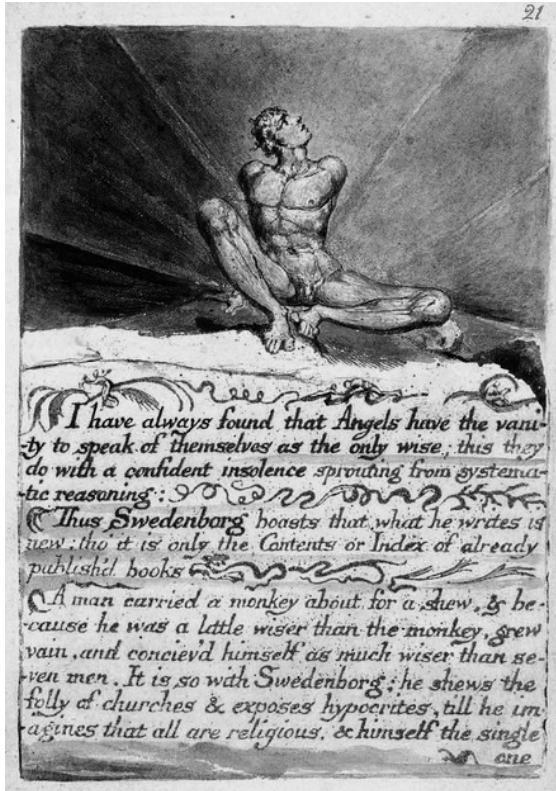 21
I have always found that Angels have the vani-
-ty to speak of themselves as the only wise; this they
do with a confident insolence sprouting from systema-
-tic reasoning:
Thus Swedenborg boasts that what he writes is
new; tho' it is only the Contents or Index of already
publish'd books
A man carried a monkey about for a shew, & be-
-cause he was a little wiser than the monkey, grew
vain, and conciev'd himself as much wiser than se-
-ven men. It is so with Swedenborg; he shews the
folly of churches & exposes hypocrites, till he im-
-agines that all are religious, & himself the single
one